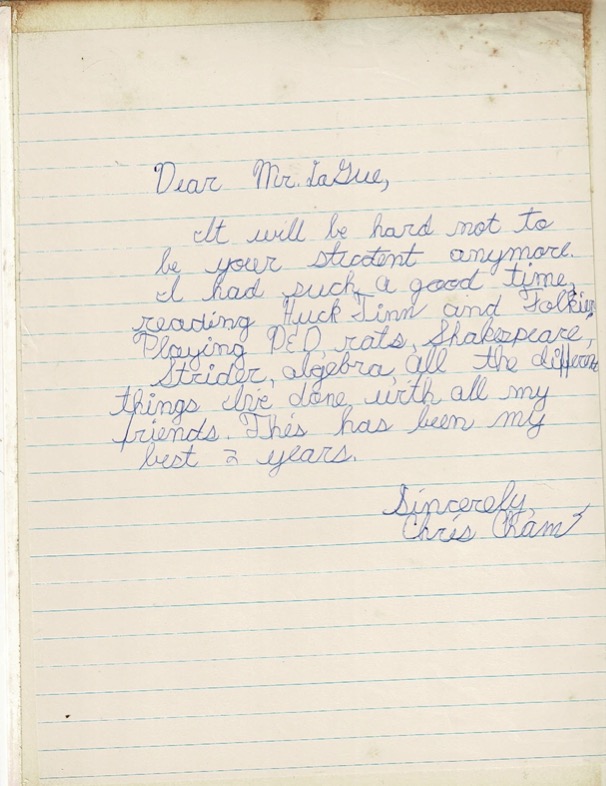 Dear Mr. LaGue,
It will be hard not to
be your student anymore.
I had such a good time,
reading Huck Finn and Tolkien
Playing D&D, rats, Shakespeare,
Strider, algebra, all the different
things I've done with all my
friends. This has been my
best 2 years.
Sincerely,
Chris